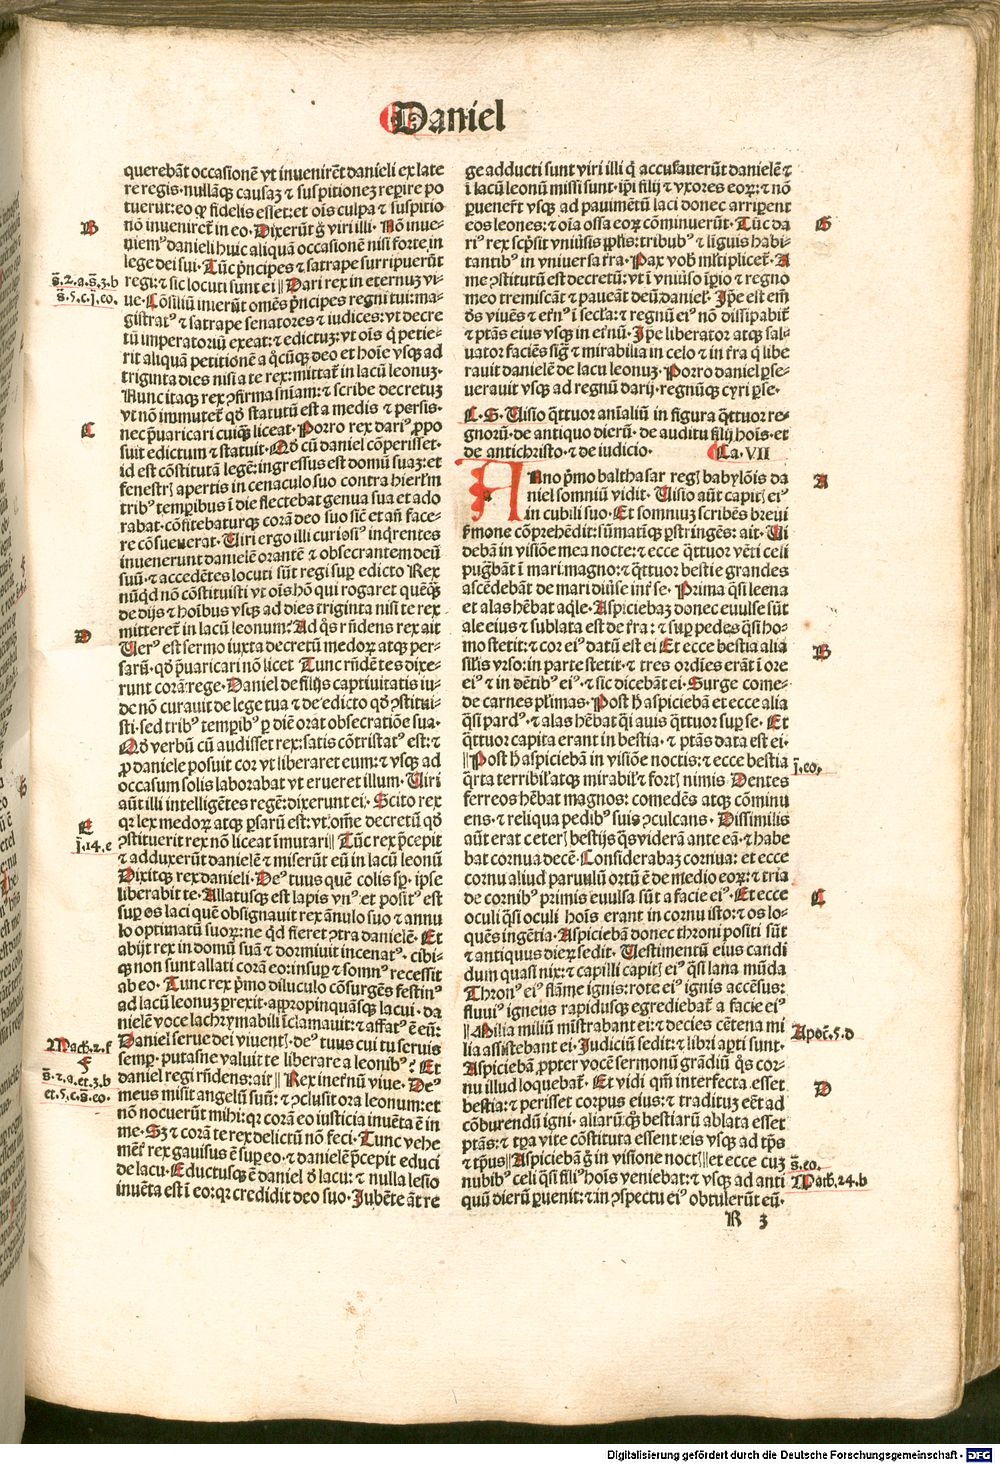 Daniel
querebāt occasionē vt inuenirēt danieli ex late
re regis·nullāq̃ꝫ causaꝫ ⁊ suspitioneꝫ reꝑire po
tuerūt:eo ꝙ fidelis esset:et oīs culpa ⁊ suspitio
nō inueniret̃ in eo·Dixerūt g̃ viri illi· Nō inue-
niemꝰ danieli huic aliquā occasionē nisi forte in
lege dei sui·Tūc p̃ncipes ⁊ satrape surripuerūt
regi:⁊ sic locuti sunt ei‖Dari rex in eternuꝫ vi-
ue·Cōsiliū inierūt omēs p̃ncipes regni tui:ma-
gistratꝰ ⁊ satrape senatores ⁊ iudices:vt decre
tū imperatoriū exeat:⁊ edictuꝫ:vt oīs q̃ petie-
rit aliquā petitionē a q̊cūq̃ꝫ deo et hoīe vsq̃ꝫ ad
triginta dies nisi a te rex:mittat̃ in lacū leonuꝫ·
Nunc itaq̃ꝫ rex ꝯfirma sniam:⁊ scribe decretuꝫ
vt nō immutet̃ qd̃ statutū est a medis ⁊ persis·
nec p̃uaricari cuiq̃ꝫ liceat·Porro rex dariꝰ ꝓpo
suit edictum ⁊ statuit·Qd̃ cū daniel cōperisset·
id est cōstitutā legē:ingressus est domū suaꝫ:et
fenestrꝭ apertis in cenaculo suo contra hierl̃m
tribꝰ temꝑibus ī die flectebat genua sua et ado
rabat·cōfitebaturq̃ꝫ corā deo suo sic̃ et an̄ face-
re cōsueuerat·Uiri ergo illi curiosiꝰ inq̃rentes
inuenerunt danielē orantē ⁊ obsecrantem deū
suū·⁊ accedētes locuti sūt regi suꝑ edicto Rex
nūqd̃ nō cōstituisti vt oīs hō qui rogaret quēq̃ꝫ
de dijs ⁊ hoībus vsq̃ꝫ ad dies triginta nisi te rex
mitteret̃ in lacū leonum:Ad q̃s rn̄dens rex ait
Uerꝰ est sermo iuxta decretū medoꝝ atq̃ꝫ per-
sarū·qd̃ p̃uaricari nō licet Tunc rn̄dētes dixe-
runt corā rege·Daniel de filijs captiuitatis iu-
de nō curauit de lege tua ⁊ de edicto qd̃ ꝯstitui-
sti·sed tribꝰ temꝑibꝰ ꝑ diē orat obsecratiōe sua·
Qd̃ verbū cū audisset rex:satis cōtristatꝰ est:⁊
ꝓ daniele posuit cor vt liberaret eum:⁊ vsq̃ꝫ ad
occasum solis laborabat vt erueret illum·Uiri
aūt illi intelligētes regē:dixerunt ei·Scito rex
qꝛ lex medoꝝ atq̃ꝫ ꝑsarū est:vt ōme decretū qd̃
ꝯstituerit rex nō liceat īmutari‖Tūc rex p̃cepit
⁊ adduxerūt danielē ⁊ miserūt eū in lacū leonū
Dixitq̃ꝫ rex danieli·Deꝰ tuus quē colis sꝑ· ipse
liberabit te·Allatusq̃ꝫ est lapis vnꝰ:et positꝰ est
suꝑ os laci quē obsignauit rex ānulo suo ⁊ annu
lo optimatū suoꝝ:ne qd̃ fieret ꝯtra danielē·Et
abijt rex in domū suā ⁊ dormiuit incenatꝰ· cibi-
q̃ꝫ non sunt allati corā eo:insuꝑ ⁊ somnꝰ recessit
ab eo·Tunc rex p̃mo diluculo cōsurgēs festinꝰ
ad lacū leonuꝫ ꝑrexit·aꝓpropinquāsq̃ꝫ lacui·da
nielē voce lachrymabili īclamauit:⁊ affatꝰ ē eū:
Daniel serue dei viuentꝭ·deꝰ tuus cui tu seruis
semꝑ·putasne valuit te liberare a leonibꝰ? Et
daniel regi rn̄dens:ait‖Rex inet̃nū viue·Deꝰ
meus misit angelū suū:⁊ ꝯclusit ora leonum:et
nō nocuerūt mihi:qꝛ corā eo iusticia inuēta ē in
me·Sꝫ ⁊ corā te rex delictū nō feci·Tunc vehe
mēt̃ rex gauisus ē suꝑ eo·⁊ danielē p̃cepit educi
de lacu·Eductusq̃ꝫ ē daniel d̃ lacu:⁊ nulla lesio
inuēta est ī eo:qꝛ credidit deo suo·Jubēte āt re
B
s̄.2.a.s̄.3.b
s̄.5.c.j̄.eo.
C
D
E
j̄.14.e
Mach.2.f
F
s̄.2.a.et.3.b
et.5.c.s̄.eo.
ge adducti sunt viri illi q̃ accusauerūt danielē ⁊
ī lacū leonū missi sunt·ip̄i filij ⁊ vxores eoꝝ:⁊ nō
ꝑuenert̃ vsq̃ꝫ ad pauimētū laci donec arriꝑent
eos leones:⁊ oīa ossa eoꝝ cōminuerūt·Tūc da
riꝰ rex scp̃sit vniũsis pp̄lis:tribubꝰ ⁊ līguis habi-
tantibꝰ in vniuersa t̃ra·Pax vob̄ ml̃tiplicet̃·A
me ꝯstitutū est decretū:vt ī vniũso īꝑio ⁊ regno
meo tremiscāt ⁊ paueāt deū daniel̃·Ip̄e est em̄
d̃s viuēs ⁊ et̃nꝰ ī secl̃a:⁊ regnū eiꝰ nō dissipabit̃
⁊ ptās eiꝰ vsq̃ꝫ in et̃nū·Ip̄e liberator atq̃ꝫ sal-
uator faciēs sig̃ ⁊ mirabilia in celo ⁊ in t̃ra q̃ libe
rauit danielē de lacu leonuꝫ·Porro daniel ꝑse-
uerauit vsq̃ꝫ ad regnū darij·regnūq̃ꝫ cyri ꝑse·
C·S·Uisio q̃ttuor aīaliū in figura q̃ttuor re-
gnorū·de antiquo dierū·de auditu filij hoīs·et
de antichristo·⁊ de iudicio· Ca·VII
ANno p̃mo balthasar regꝭ babylōis da
niel somniū vidit·Uisio aūt capitꝭ eiꝰ
in cubili suo·Et somniuꝫ scribēs breui
ẜmone cōprehēdit:sūmatiq̃ꝫ ꝑstringēs:ait·Ui
debā in visiōe mea nocte:⁊ ecce q̃ttuor vēti celi
pug̃bāt ī mari magno:⁊ q̃ttuor bestie grandes
ascēdebāt de mari diũse int̃ se·Prima q̃si leena
et alas hēbat aq̃le·Aspiciebaꝫ donec euulse sūt
ale eius ⁊ sublata est de t̃ra:⁊ suꝑ pedes q̃si ho-
mo stetit:⁊ cor eiꝰ datū est ei Et ecce bestia alia
sil̃is vrso:in parte stetit·⁊ tres ordīes erāt ī ore
eiꝰ ⁊ in dētibꝰ eiꝰ·⁊ sic dicebāt ei·Surge come-
de carnes pl̃imas·Post h̄ aspiciebā et ecce alia
q̃si pardꝰ·⁊ alas hēbat q̃i auis q̃ttuor suꝑ se·Et
q̃ttuor capita erant in bestia·⁊ ptās data est ei·
‖Post h̄ aspiciebā in visiōe noctis:⁊ ecce bestia
q̃rta terribil̃ atq̃ꝫ mirabil̃ ⁊ fortꝭ nimis Dentes
ferreos hēbat magnos:comedēs atq̃ꝫ cōminu
ens·⁊ reliqua pedibꝰ suis ꝯculcans·Dissimilis
aūt erat ceterꝭ bestijs q̃s viderā ante eā·⁊ habe
bat cornua decē·Considerabaꝫ cornua:et ecce
cornu aliud paruulū ortū ē de medio eoꝝ:⁊ tria
de cornibꝰ primis euulsa sūt a facie eiꝰ·Et ecce
oculi q̃si oculi hoīs erant in cornu isto:⁊ os lo-
quēs ingētia·Aspiciebā donec throni positi sūt
⁊ antiquus dieꝝ sedit·Uestimentū eius candi
dum quasi nix:⁊ capilli capitꝭ eiꝰ q̃si lana mūda
Thronꝰ eiꝰ flāme ignis:rote eiꝰ ignis accēsus:
fluuiꝰ igneus rapidusq̃ꝫ egrediebat̃ a facie eiꝰ
‖Milia miliū mīstrabant ei:⁊ decies cētena mi
lia assistebant ei·Judiciū sedit:⁊ libri aꝑti sunt·
Aspiciebā ꝓpter vocē sermonū grādiū q̃s cor-
nu illud loquebat̃·Et vidi qm̄ interfecta esset
bestia:⁊ perisset corpus eius:⁊ tradituꝫ eēt ad
cōburendū igni·aliarū q̃ꝫ bestiarū ablata esset
ptās:⁊ tꝑa vite cōstituta essent eis vsq̃ꝫ ad tp̄s
⁊ tp̄us‖Aspiciebā g̃ in visione noctꝭ‖et ecce cuꝫ
nubibꝰ celi q̃si filiꝰ hoīs veniebat:⁊ vsq̃ꝫ ad anti
quū dierū ꝑuenit:⁊ in ꝯspectu eiꝰ obtulerūt eū·
G
A
B
j̄.eo.
C
Apoc̄.5.d
D
s̄.eo.
Math̄.24.b
R 3
Digitalisierung gefördert durch die Deutsche Forschungsgemeinschaft - DFG